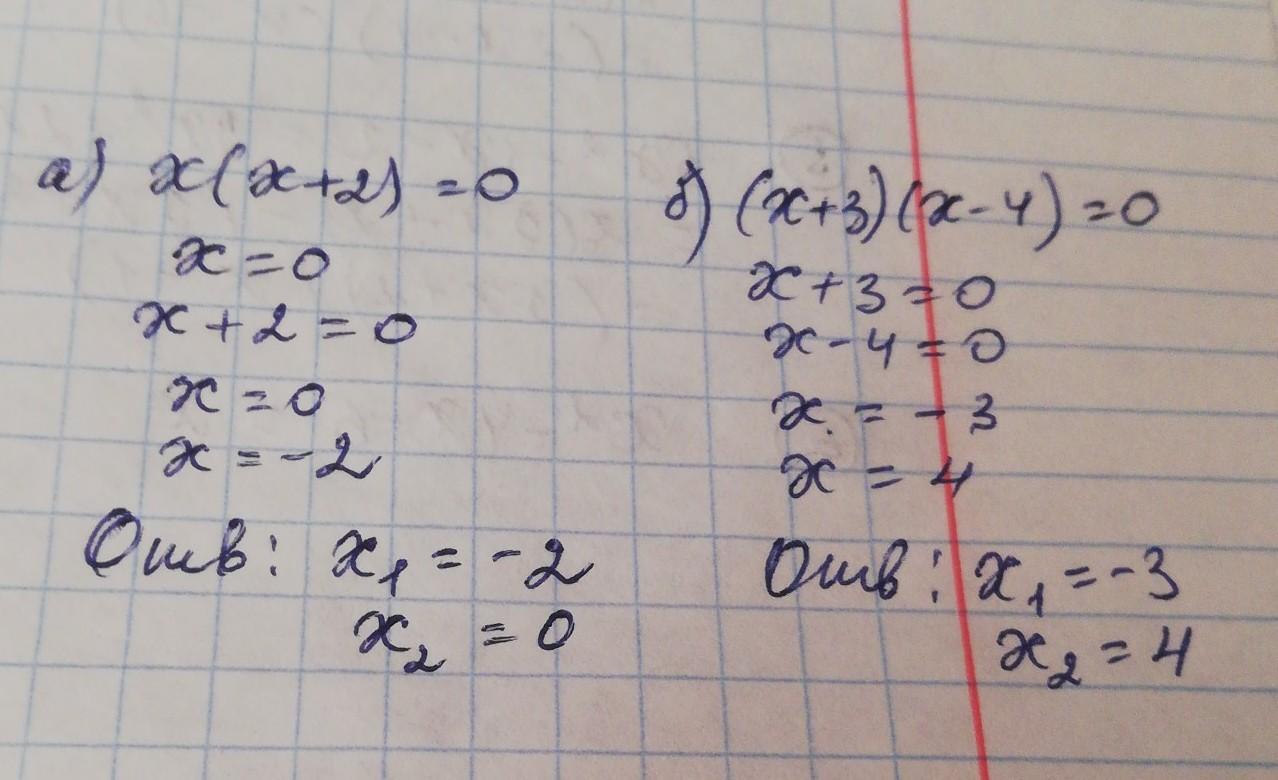 а) x(x+2) =0
x=0
x+2=0
x=0
x=-2
Отв: x₁ = -2
x₂ = 0
б) (x+3)(x-4)=0
x+3=0
x-4=0
x = -3
x = 4
Отв: x₁ =-3
x₂ = 4